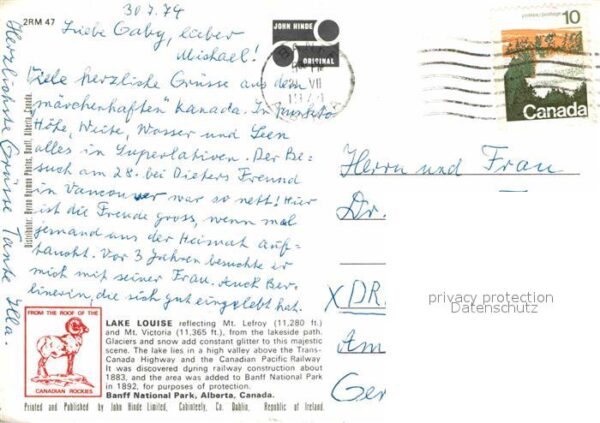 2RM 47
30.7.74
Liebe Gaby, lieber
Michael!
Viele herzliche Grüsse aus dem
märchenhaften Kanada. In
Höhe, Weite, Wasser und Seen
alles in Superlativen. Der Be-
such am 28. bei Dieters Freund
in Vancouver war so nett! Hier
ist die Freude gross, wenn mal
jemand aus der Heimat auf-
taucht. Vor 3 Jahren besuchte er
mich mit seiner Frau. Auch Ber-
linerin, die sich gut eingelebt hat.
Herzlichste Grüsse Tante Illa.
Distributor: Byron Harmon Photos, Banff, Alberta, Canada.
JOHN HINDE
ORIGINAL
VII
postes/postage
10
Canada
Herrn und Frau
Dr.
X DR.
Am
Ger
privacy protection
Datenschutz
FROM THE ROOF OF THE
CANADIAN ROCKIES
LAKE LOUISE reflecting Mt. Lefroy (11,280 ft.)
and Mt. Victoria (11,365 ft.), from the lakeside path.
Glaciers and snow add constant glitter to this majestic
scene. The lake lies in a high valley above the Trans-
Canada Highway and the Canadian Pacific Railway
It was discovered during railway construction about
1883, and the area was added to Banff National Park
in 1892, for purposes of protection.
Banff National Park, Alberta, Canada.
Printed and Published by John Hinde Limited, Cabinteely, Co. Dublin, Republic of Ireland.